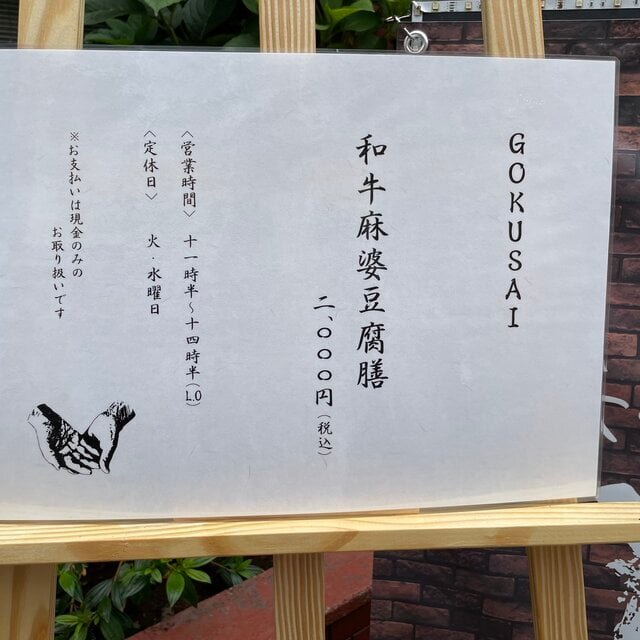 GOKUSAI
和牛麻婆豆腐膳
二、〇〇〇円(税込)
〈営業時間〉 十一時半~十四時半(L.O)
〈定休日〉 火・水曜日
※お支払いは現金のみの
お取り扱いです